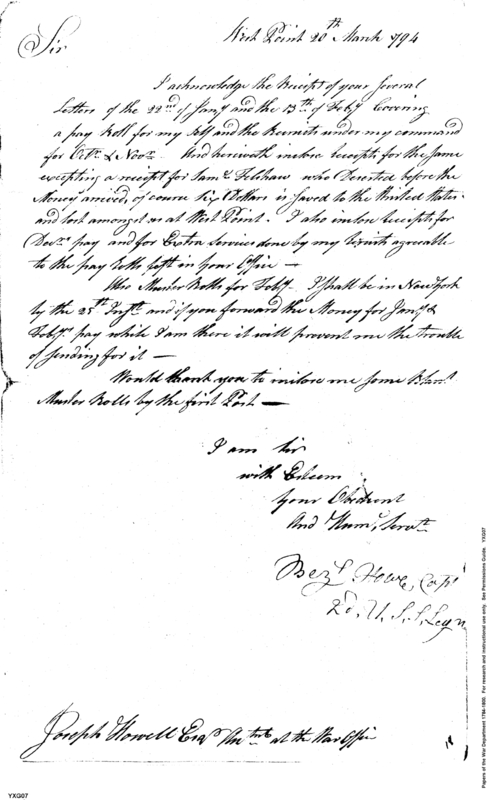 West Point 20th March 1794
Sir
I acknowledge the Receipt of your several
Letters of the 22nd of Jany and the 13th of Feby Covering
a pay Roll for my Self and the Recruits under my command
for Octr. & Novr. And herewith inclose Receipts for the same
excepting a receipt for Saml. who Deserted before the
Money arrived, of course Six Dollars is saved to the United States
and lost amongst us at West Point. I also inclose Receipts for
Decr. pay and for Extra Services done by my Recruits agreeable
to the pay Rolls in your Office —
Also Muster Rolls for Feby. I shall be in New York
by the 25th Inst. and if you forward the Money for Jany. &
Feby. pay while I am there it will prevent me the trouble
of sending for it —
Would thank you to inclose me some Blank
Muster Rolls by the first Post —
I am Sir
with Esteem
your Obedient
And Humb. Servt.
Bezl. Howe, Capt
2d. U. S. S. Legn
Joseph Howell Esqr. at the War Office
YXG07
Papers of the War Department 1784-1800. For research and instructional use only. See Permissions Guide. YXG07